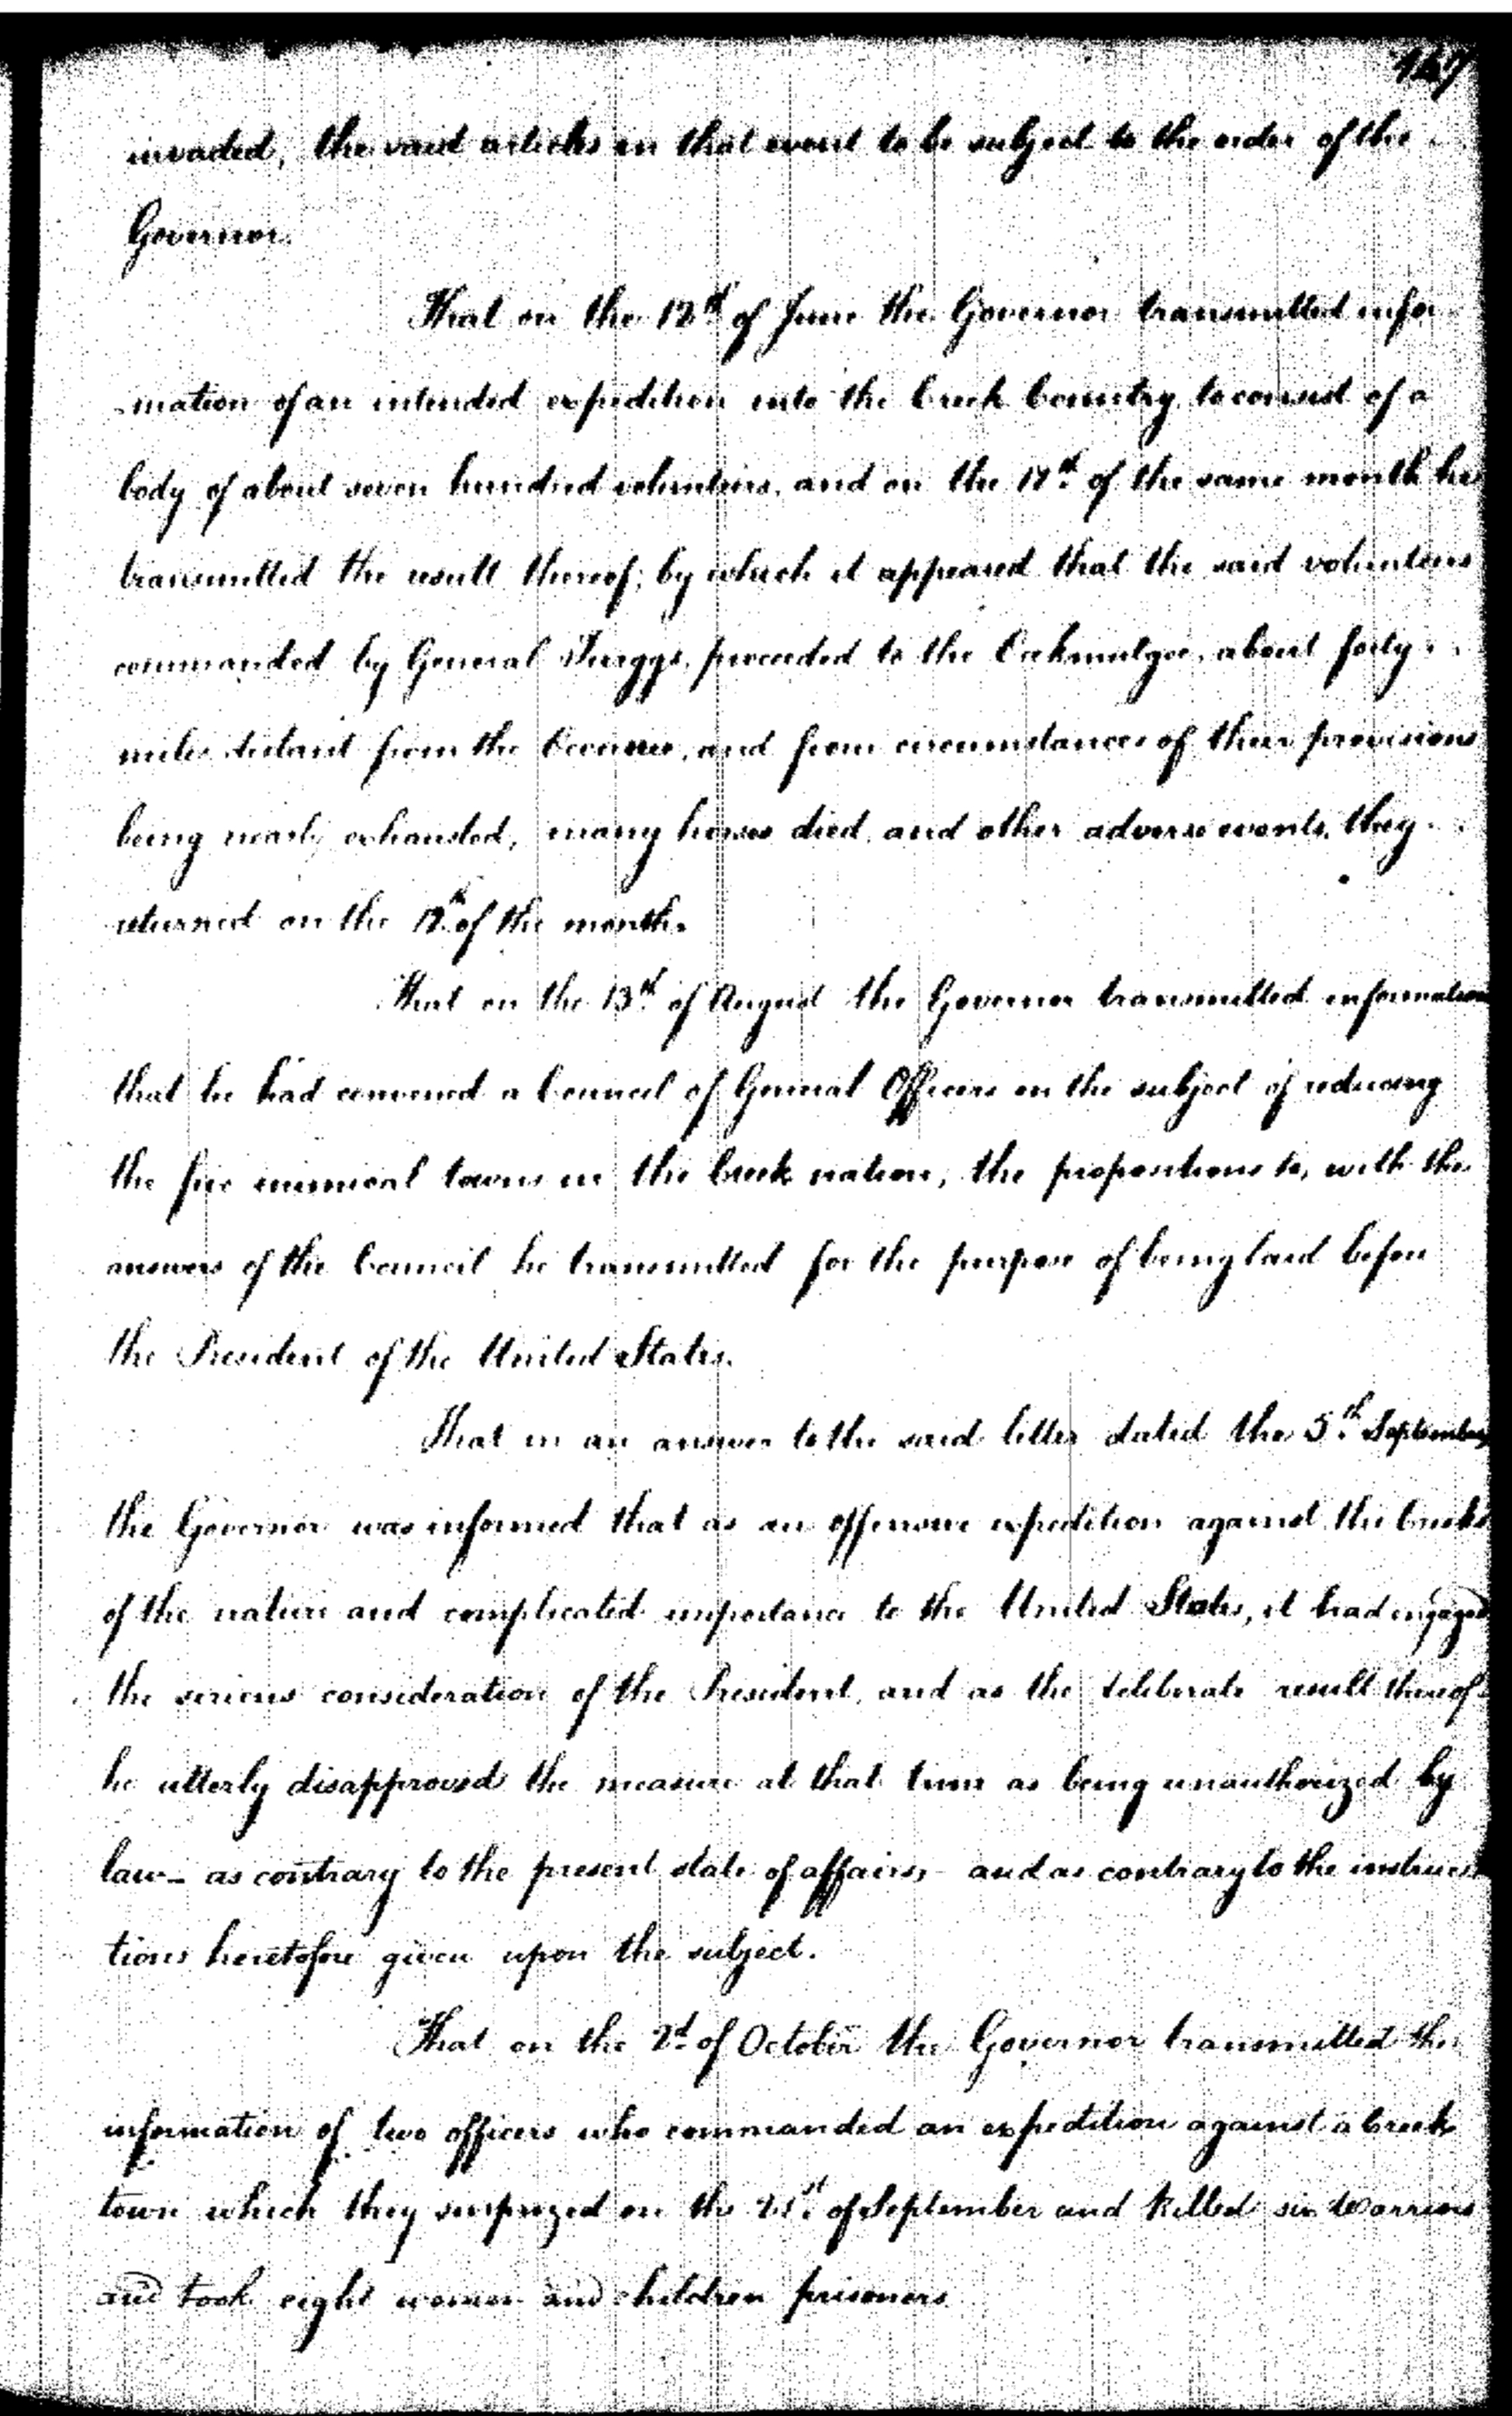 147
invaded, the said articles in that event to be subject to the order of the
Governor.
That on the 12th of June the Governor transmitted infor-
-mation of an intended expedition into the Creek Country, to consist of a
body of about seven hundred volunteers, and on the 17th of the same month he
transmitted the result thereof; by which it appeared that the said volunteers
commanded by General Twiggs, proceeded to the Oakmulgee, about forty
miles distant from the Oconee, and from circumstances of their provisions
being nearly exhausted, many horses died, and other adverse events, they
returned on the of the month.
That on the 13th of August the Governor transmitted information
that he had convened a Council of General Officers on the subject of reducing
the five inimical towns in the Creek nation, the propositions to, with the
answers of the Council he transmitted for the purpose of being laid before
the President of the United States.
That in an answer to the said letter dated the 5th September
the Governor was informed that as an offensive expedition against the Creeks
of the nature and complicated importance to the United States, it had engaged
the serious consideration of the President, and as the deliberate result thereof
he utterly disapproved the measure at that time as being unauthorized by
law - as contrary to the present state of affairs, - and as contrary to the instruc-
tions heretofore given upon the subject.
That on the 2d of October the Governor transmitted the
information of two officers who commanded an expedition against a Creek
town which they surprized on the 21st of September and killed six Warriors
and took eight women and children prisoners